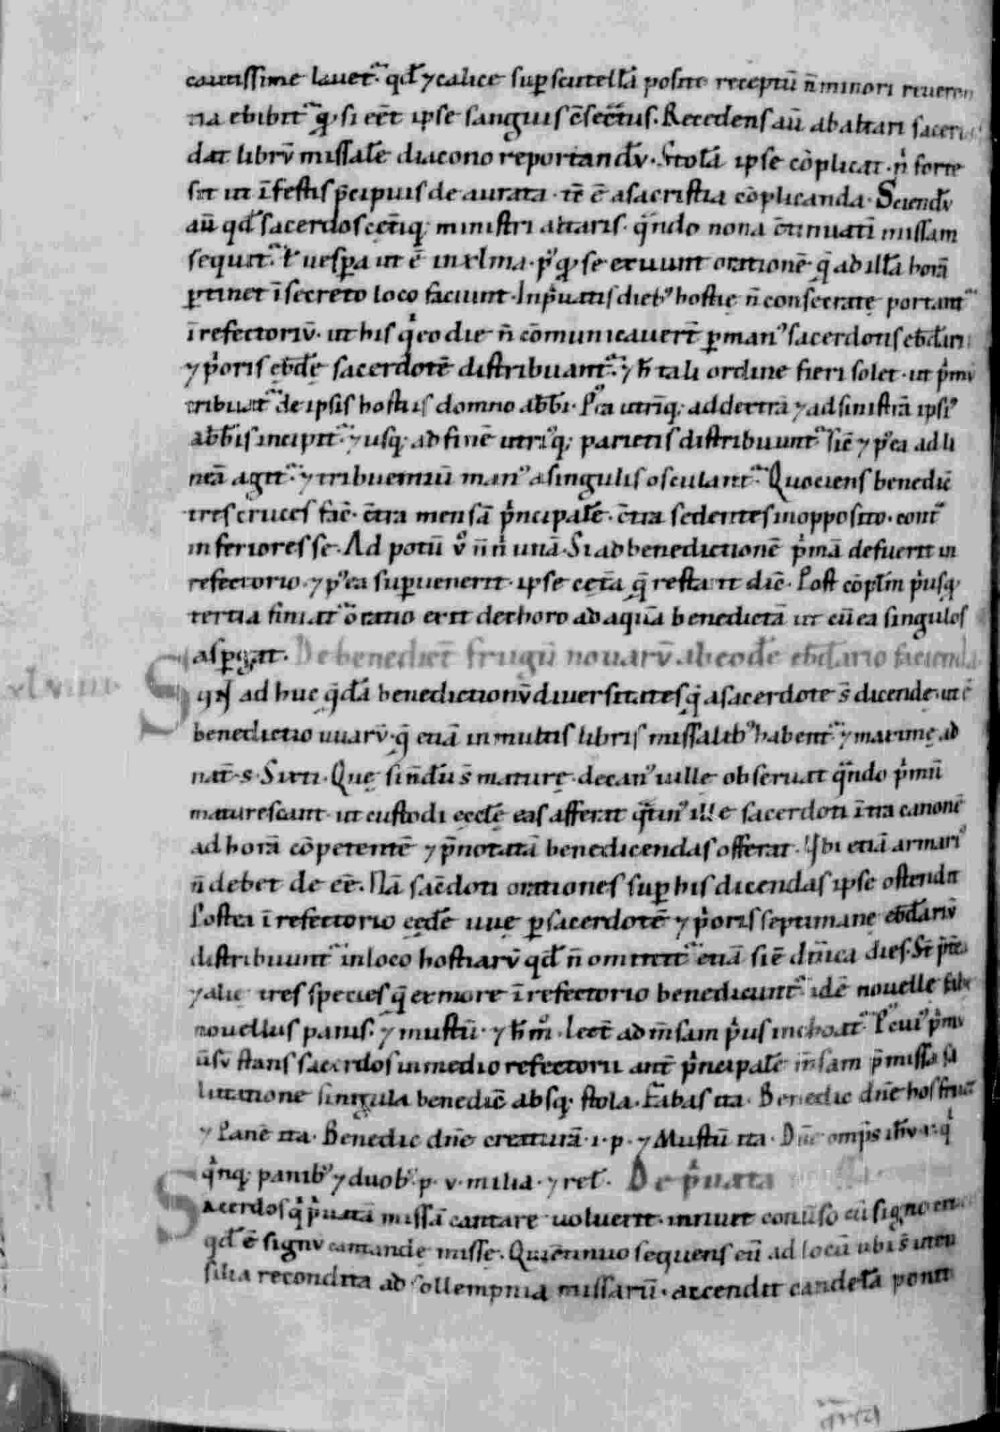 cautissime lauet᷑. qđ ⁊ calice sup scutellā posito receptū n̄ minori reueren
tia ebibit᷑ q̄ si eēt ipse sanguis ꝯsec̄tus. Recedens aū ab altari sacer
dat librū missałe diacono reportandū. Stolā ipse cōplicat. n̄ forte
sit ut ī festis p̄cipuis de aurata. tc̄ ē a sacristia cōplicanda. Sciendū
aū qđ sacerdos ceti q; ministri altaris. q̄ndo nona ꝯtinuatī missam
sequit᷑. ł uespa ut ē in xlma. pꝰ q̄ se exuunt orationē q̄ ad illā horā
ptinet ī secreto loco faciunt. In puatis diebꝰ hostie n̄ consecrate portant᷑
ī refectoriū. ut his q̇ eo die n̄ cōmunicauerт̄ p manꝰ sacerdotis ebđari
⁊ ṗoris ebđe sacerdotē distribuant᷑. ⁊ h̄ tali ordine fieri solet. ut ṗmu
tribuat᷑ de ipsis hostiis domno abb̄i. Pꝰea utrīq; ad dextrā ⁊ ad sinistrā ipsiꝰ
abb̄is incipit᷑. ⁊ usq; ad finē utriꝰq; parietis distribuunt᷑ sic̄ ⁊ pꝰea ad li
neā agit᷑. ⁊ tribuentiū manꝰ a singulis osculant᷑. Quociens benedic̄
tres cruces fac̄. ꝯtra mensā ṗncipałe. ꝯtra sedentes in opposito. cont᷑
inferiores se. Ad potū ů n̄ n̄ unā. Si ad benedictionē ṗmā defuerit in
refectorio. ⁊ pꝰea supuenerit. ipse cetā q̄ restant dic̄. Post cōpłm ṗusq;
tertia finiat᷑ oratio exit de choro ad aquā benedictā ut cū ea singulos
aspgat. De benedict̄ frugū nouarū ab eodē ebđario facienda
xlviiii. Sunt adhuc q̄dā benedictionū diuersitates q̄ a sacerdote s̄ dicende. ut ē
benedictio uuarū. q̄ etiā in multis libris missalibꝰ habent᷑. ⁊ maxime ad
nat̄. s. Sixti. Que sinđu s̄ mature. decanꝰ uille obseruat q̄ndo ṗmū
maturescant. ut custodi eccłe eas afferat q̄tinꝰ ille sacerdoti īfra canonē
ad horā cōpetentē ⁊ p̄notatā benedicendas offerat. Ubi etiā armariꝰ
n̄ debet de eē. Nā sac̄doti orationes sup his dicendas ipse ostendit
Postea ī refectorio eedē uue p sacerdotē ⁊ ṗoris septimane ebđariū
distribuunt᷑ in loco hostiarū qđ n̄ omittit᷑ etiā sic̄ dn̄ica dies.
⁊ alie tres species q̄ ex more ī refectorio benedicunt᷑. idē nouelle fabe
nouellus panis. ⁊ mustū. ⁊ h̄ mꝰ. Lect̄ ad m̄sam ṗus inchoat᷑.
ūsū stans sacerdos in medio refectorii ant̄ ṗncipałe m̄sam p̄missa sa
lutatione singula benedic̄ absq; stola. Fabas ita. Benedic dn̄e hos fruct
⁊ Panē ita. Benedic dn̄e creaturā. i. p. ⁊ Mustū ita. Dn̄e omps
q̇nq; panibꝰ ⁊ duobꝰ. p. v. milia. ⁊ reł. De ṗuata
Sacerdos q̇ ṗuatā missā cantare uoluerit. innuit conuso cū signo
qđ ē signū cantande misse. Qui ꝯtinuo sequens eū ad locū ubi s̄ uten
silia recondita ad sollempnia missarū. accendit candełā ponit